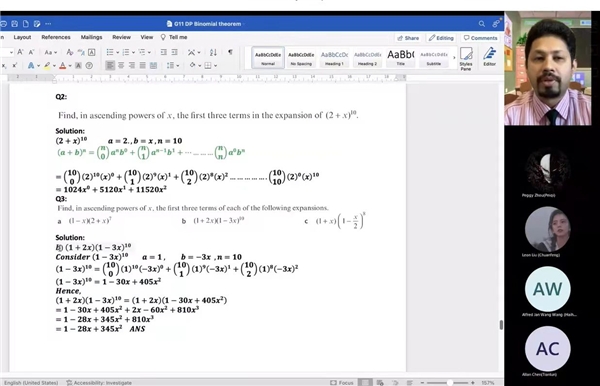 G11 DP Binomial theorem
Layout References Mailings Review View Tell me
Share Editing Comments
AaBbCcDdEe AaBbCcDdEe AaBbCcDc AaBbCcDdEe AaBb( AaBbCcDdEe
Normal No Spacing Heading 1 Heading 2 Title Subtitle
Styles Pane Editor
Q2:
Find, in ascending powers of x, the first three terms in the expansion of (2 + x)¹⁰.
Solution:
(2 + x)¹⁰ a = 2, , b = x , n = 10
(a + b)ⁿ = (n 0) aⁿb⁰ + (n 1) aⁿ⁻¹b¹ + ⋯ … … … (n n) a⁰bⁿ
= (10 0) (2)¹⁰(x)⁰ + (10 1) (2)⁹(x)¹ + (10 2) (2)⁸(x)² … … … … … (10 10) (2)⁰(x)¹⁰
= 1024x⁰ + 5120x¹ + 11520x²
Q3:
Find, in ascending powers of x, the first three terms of each of the following expansions.
a (1 − x)(2 + x)⁷ b (1 + 2x)(1 − 3x)¹⁰ c (1 + x)(1 − x/2)⁸
Solution:
b) (1 + 2x)(1 − 3x)¹⁰
Consider (1 − 3x)¹⁰ a = 1 , b = −3x , n = 10
(1 − 3x)¹⁰ = (10 0) (1)¹⁰(−3x)⁰ + (10 1) (1)⁹(−3x)¹ + (10 2) (1)⁸(−3x)²
(1 − 3x)¹⁰ = 1 − 30x + 405x²
Hence,
(1 + 2x)(1 − 3x)¹⁰ = (1 + 2x)(1 − 30x + 405x²)
= 1 − 30x + 405x² + 2x − 60x² + 810x³
= 1 − 28x + 345x² + 810x³
= 1 − 28x + 345x² ANS
English (United States) Accessibility: Investigate Focus 157%
AW
AC